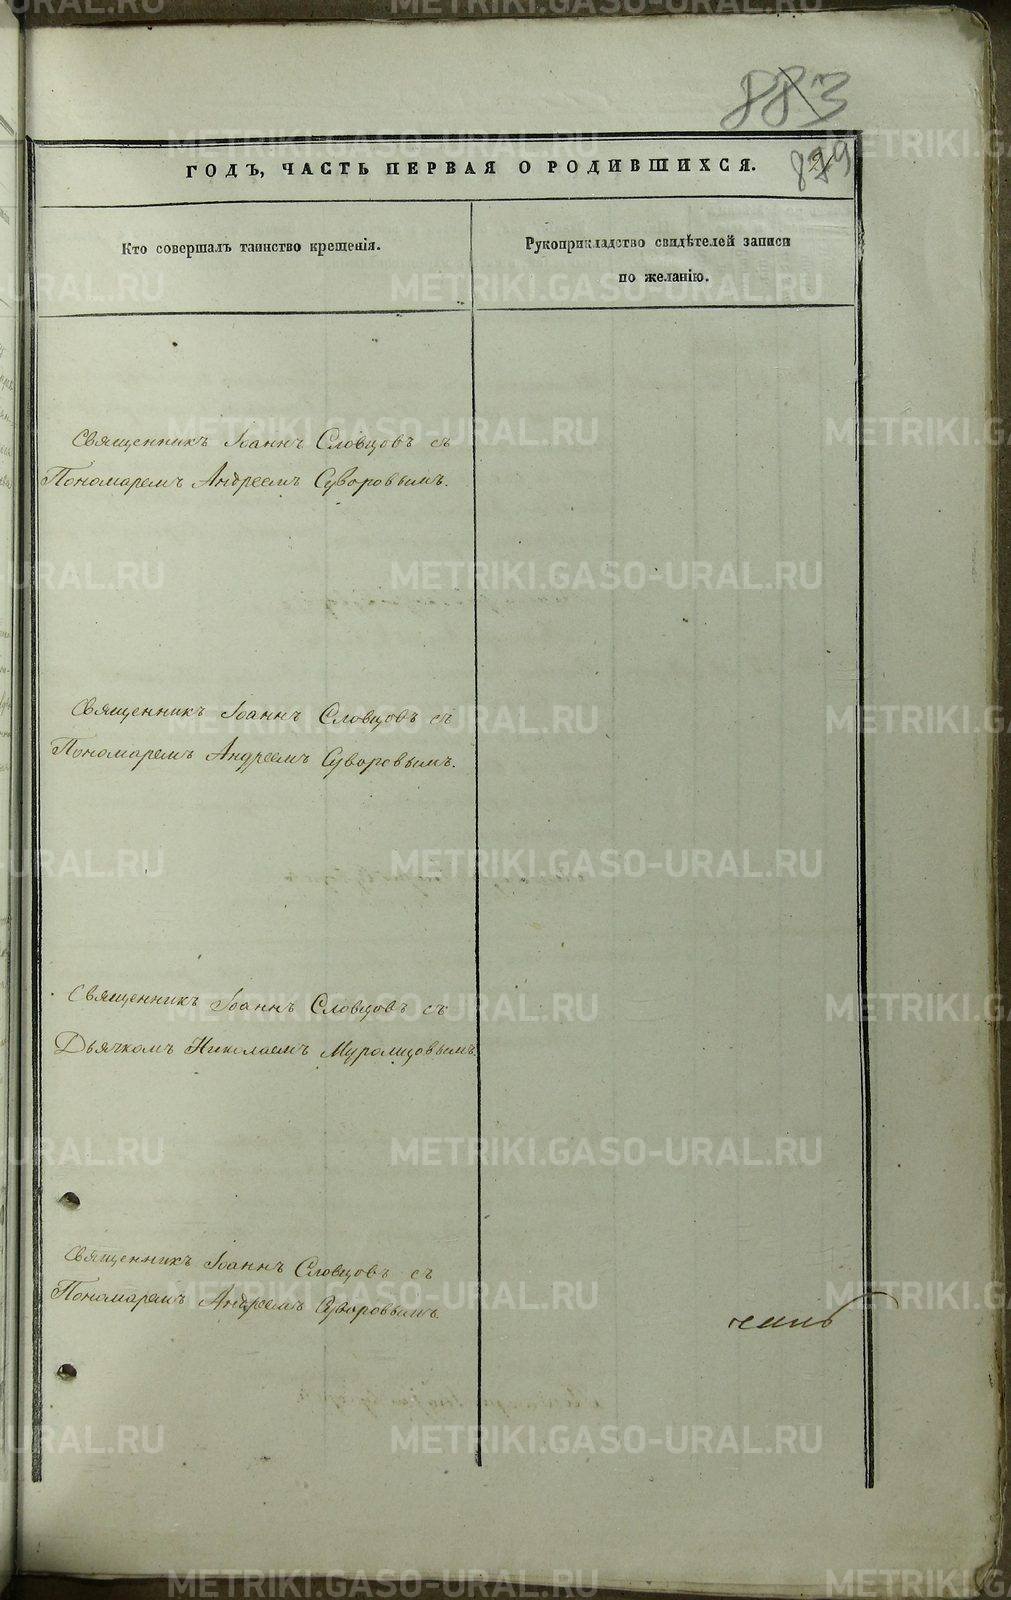 883
ГОДЪ, ЧАСТЬ ПЕРВАЯ О РОДИВШИХСЯ.
Кто совершалъ таинство крещенія.
Рукоприкладство свидѣтелей записи
по желанію.
Священникъ Іоаннъ Словцовъ съ
Пономаремъ Андреемъ Суворовымъ.
Священникъ Іоаннъ Словцовъ съ
Пономаремъ Андреемъ Суворовымъ.
Священникъ Іоаннъ Словцовъ съ
Дьячкомъ Николаемъ Муромцовымъ.
Священникъ Іоаннъ Словцовъ съ
Пономаремъ Андреемъ Суворовымъ.
METRIKI.GASO-URAL.RU